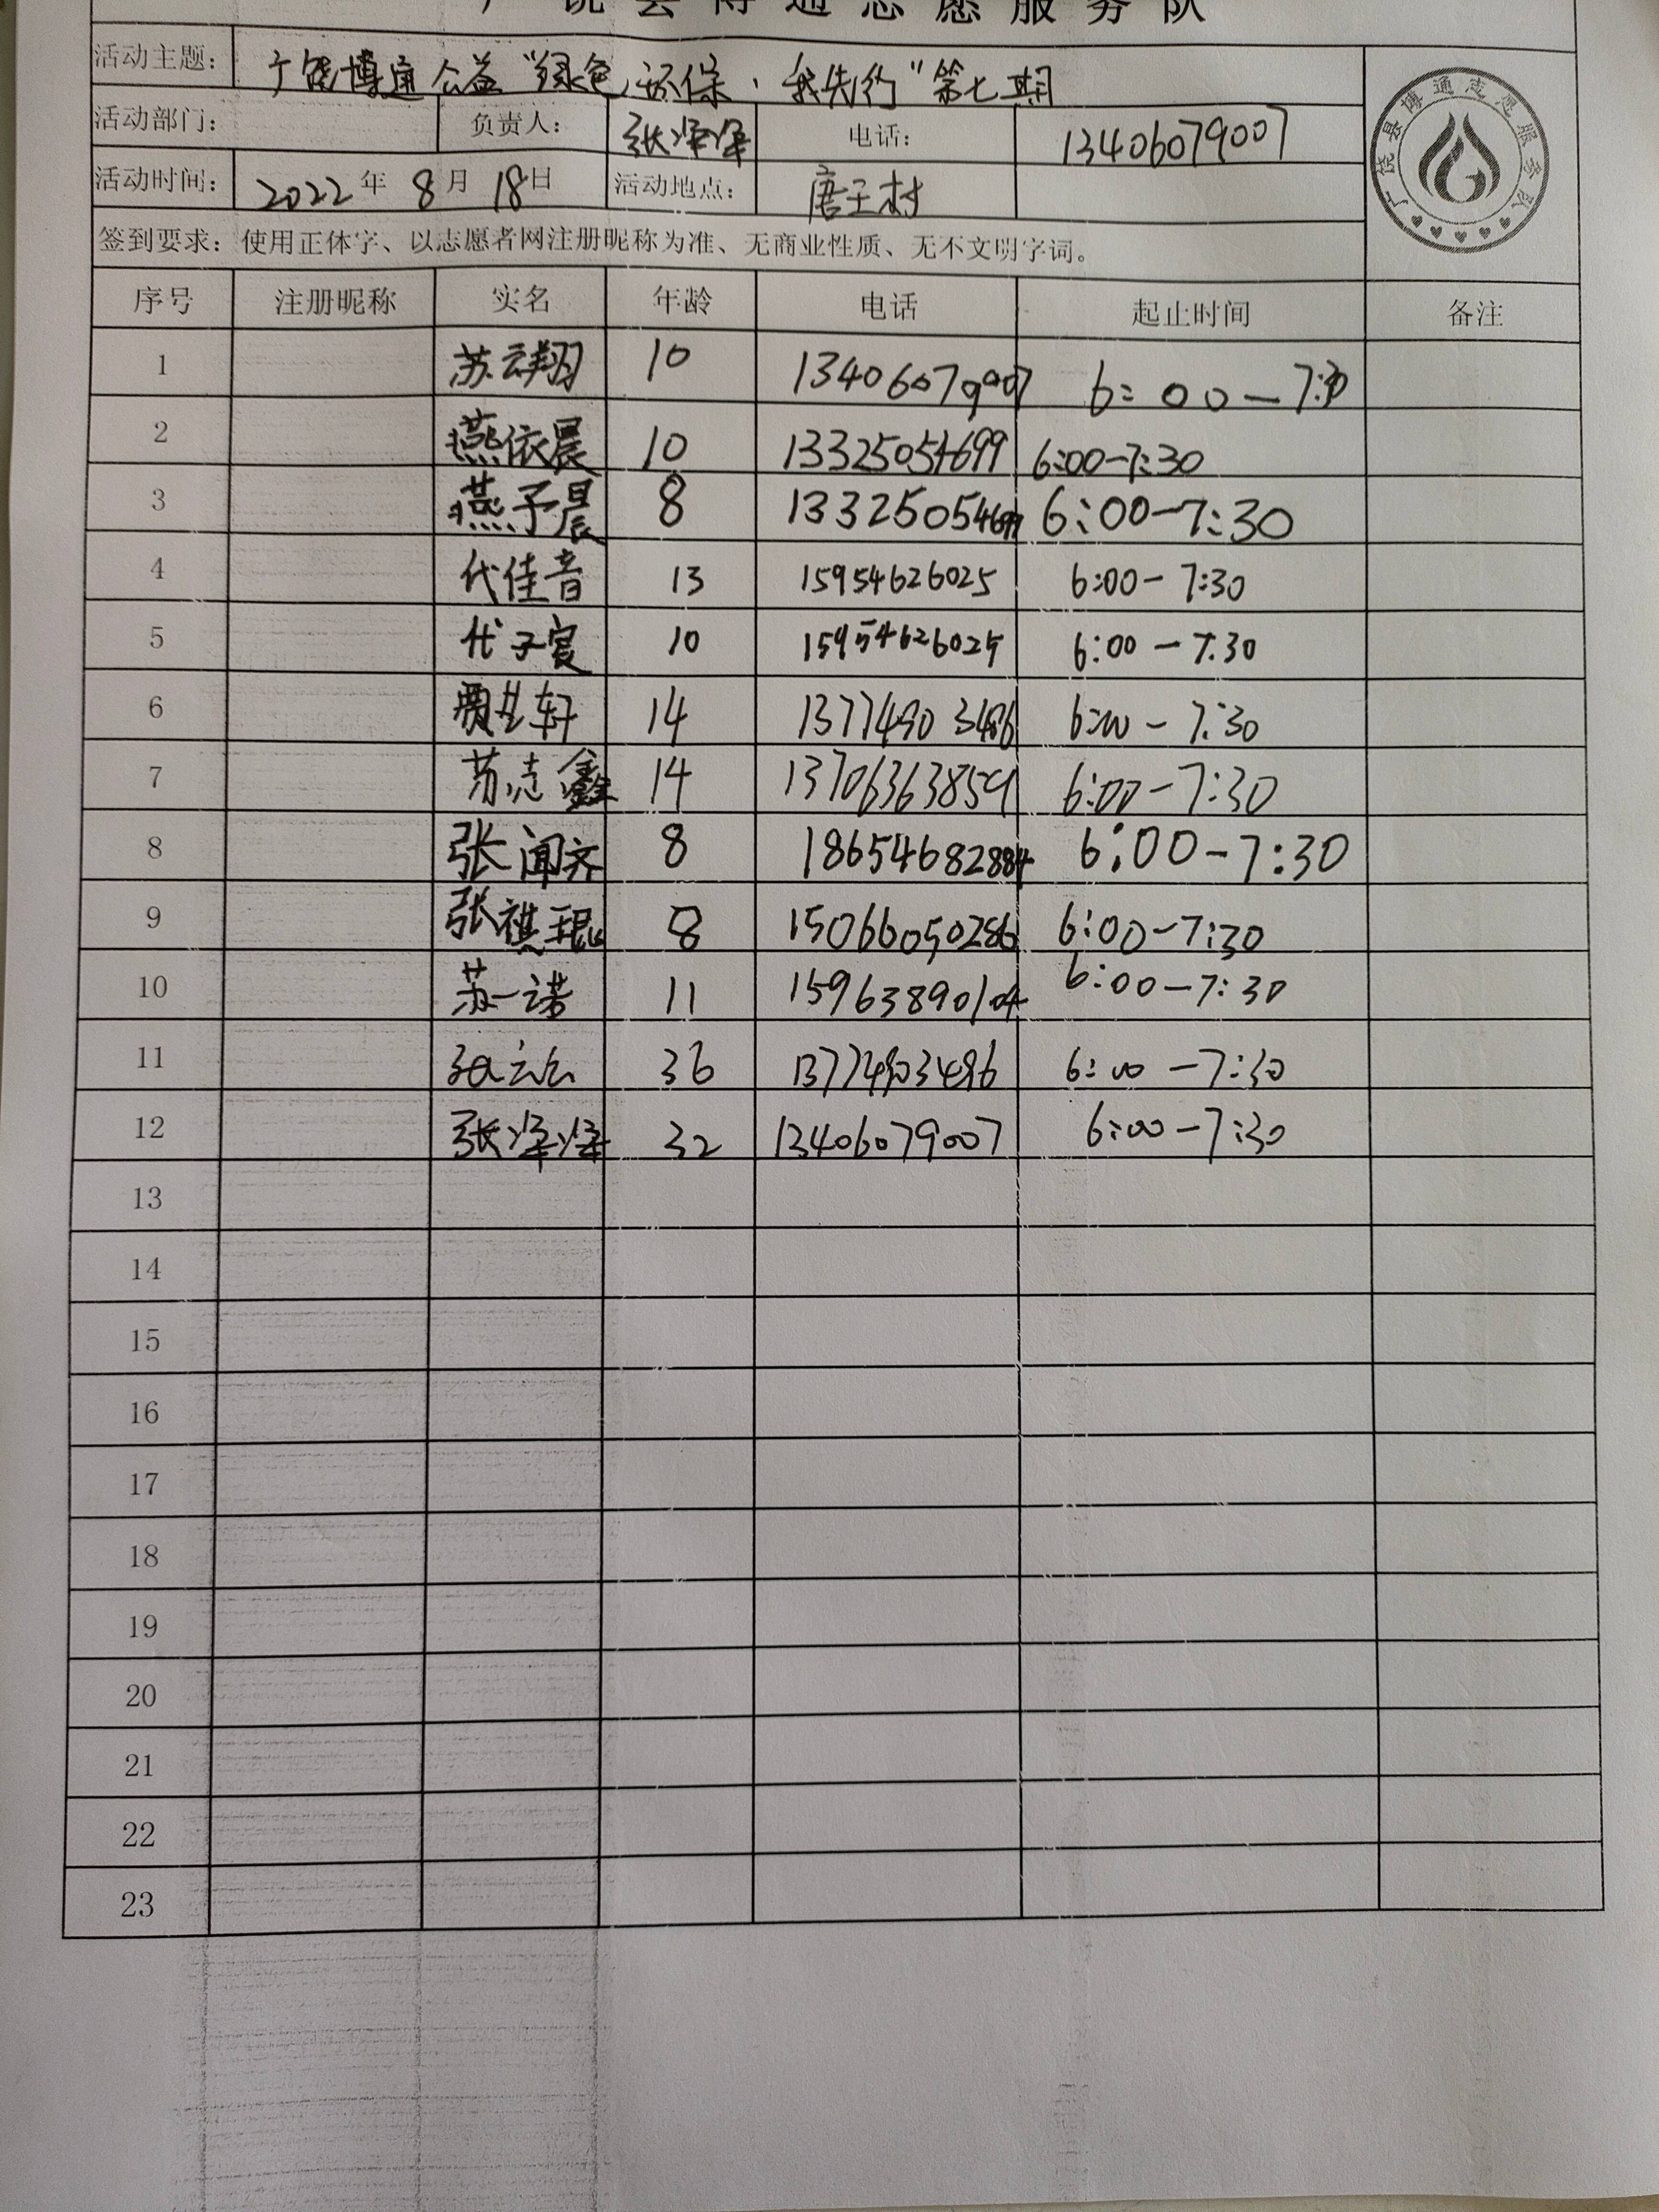 广饶县博通志愿服务队
活动主题： 广饶博通公益“绿色环保，我先行”第七期
活动部门： 负责人： 张泽泽 电话： 13406079007
活动时间： 2022年 8月 18日 活动地点： 唐王村
签到要求：使用正体字、以志愿者网注册昵称为准、无商业性质、无不文明字词。
广饶县博通志愿服务队
序号 注册昵称 实名 年龄 电话 起止时间 备注
1 苏云翔 10 13406079007 6:00-7:30
2 燕依晨 10 13325054699 6:00-7:30
3 燕予晨 8 13325054699 6:00-7:30
4 代佳音 13 15954626025 6:00-7:30
5 代子宸 10 15954626025 6:00-7:30
6 贾 轩 14 13774903486 6:00-7:30
7 苏志鑫 14 13706363859 6:00-7:30
8 张闻齐 8 18654682884 6:00-7:30
9 张祺琨 8 15066050286 6:00-7:30
10 苏一诺 11 15963890104 6:00-7:30
11 36 13774903486 6:00-7:30
12 张泽泽 32 13406079007 6:00-7:30
13
14
15
16
17
18
19
20
21
22
23